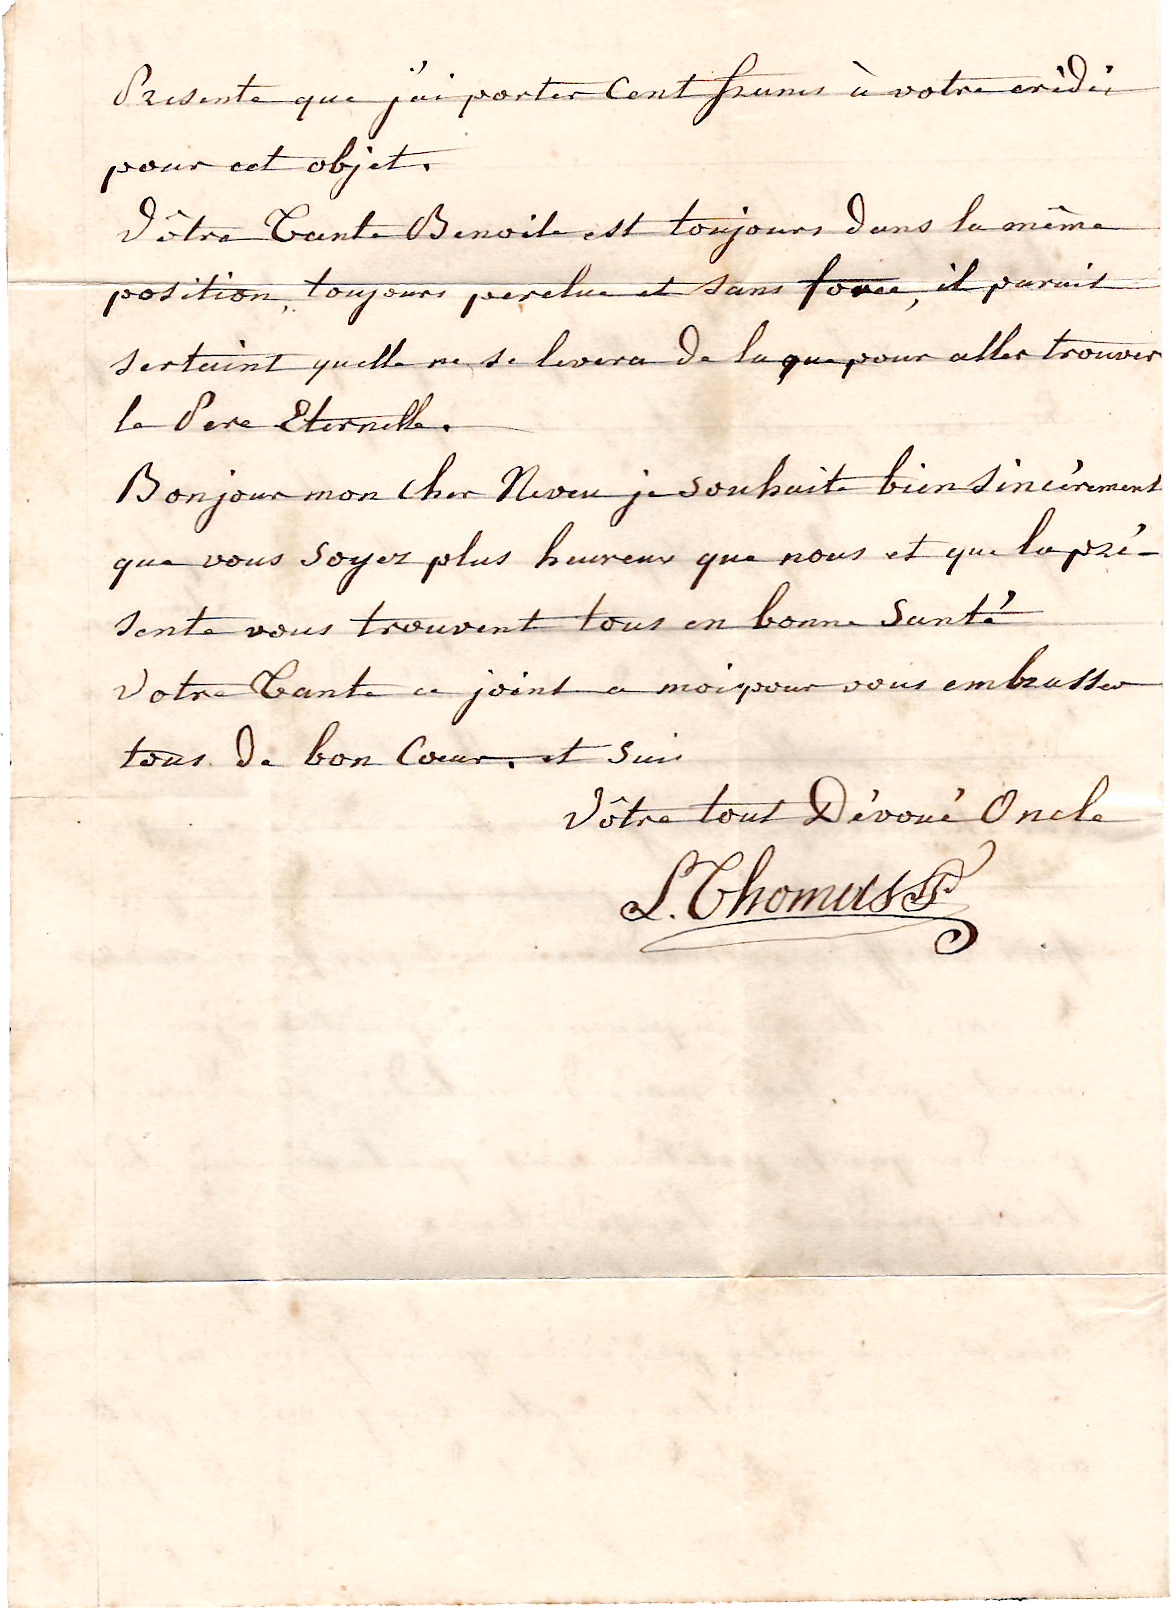 Presente que j'ai porter Cent francs à votre crèdit
pour cet objet.
Vôtre Tante Benoite est toujours dans la même
position, toujours perclue et sans force, il parait
sertaint quelle ne se levera de la que pour aller trouver
le Pere Eternelle.
Bonjour mon Cher Neveu je souhaite bien sincérement
que vous soyez plus heureux que nous et que la pré-
sente vous trouvent tous en bonne Santé
Votre Tante ce joint a moi pour vous embrasser
tous de bon Cœur. et suis
Vôtre tout Dévoué Oncle
L. Thomass